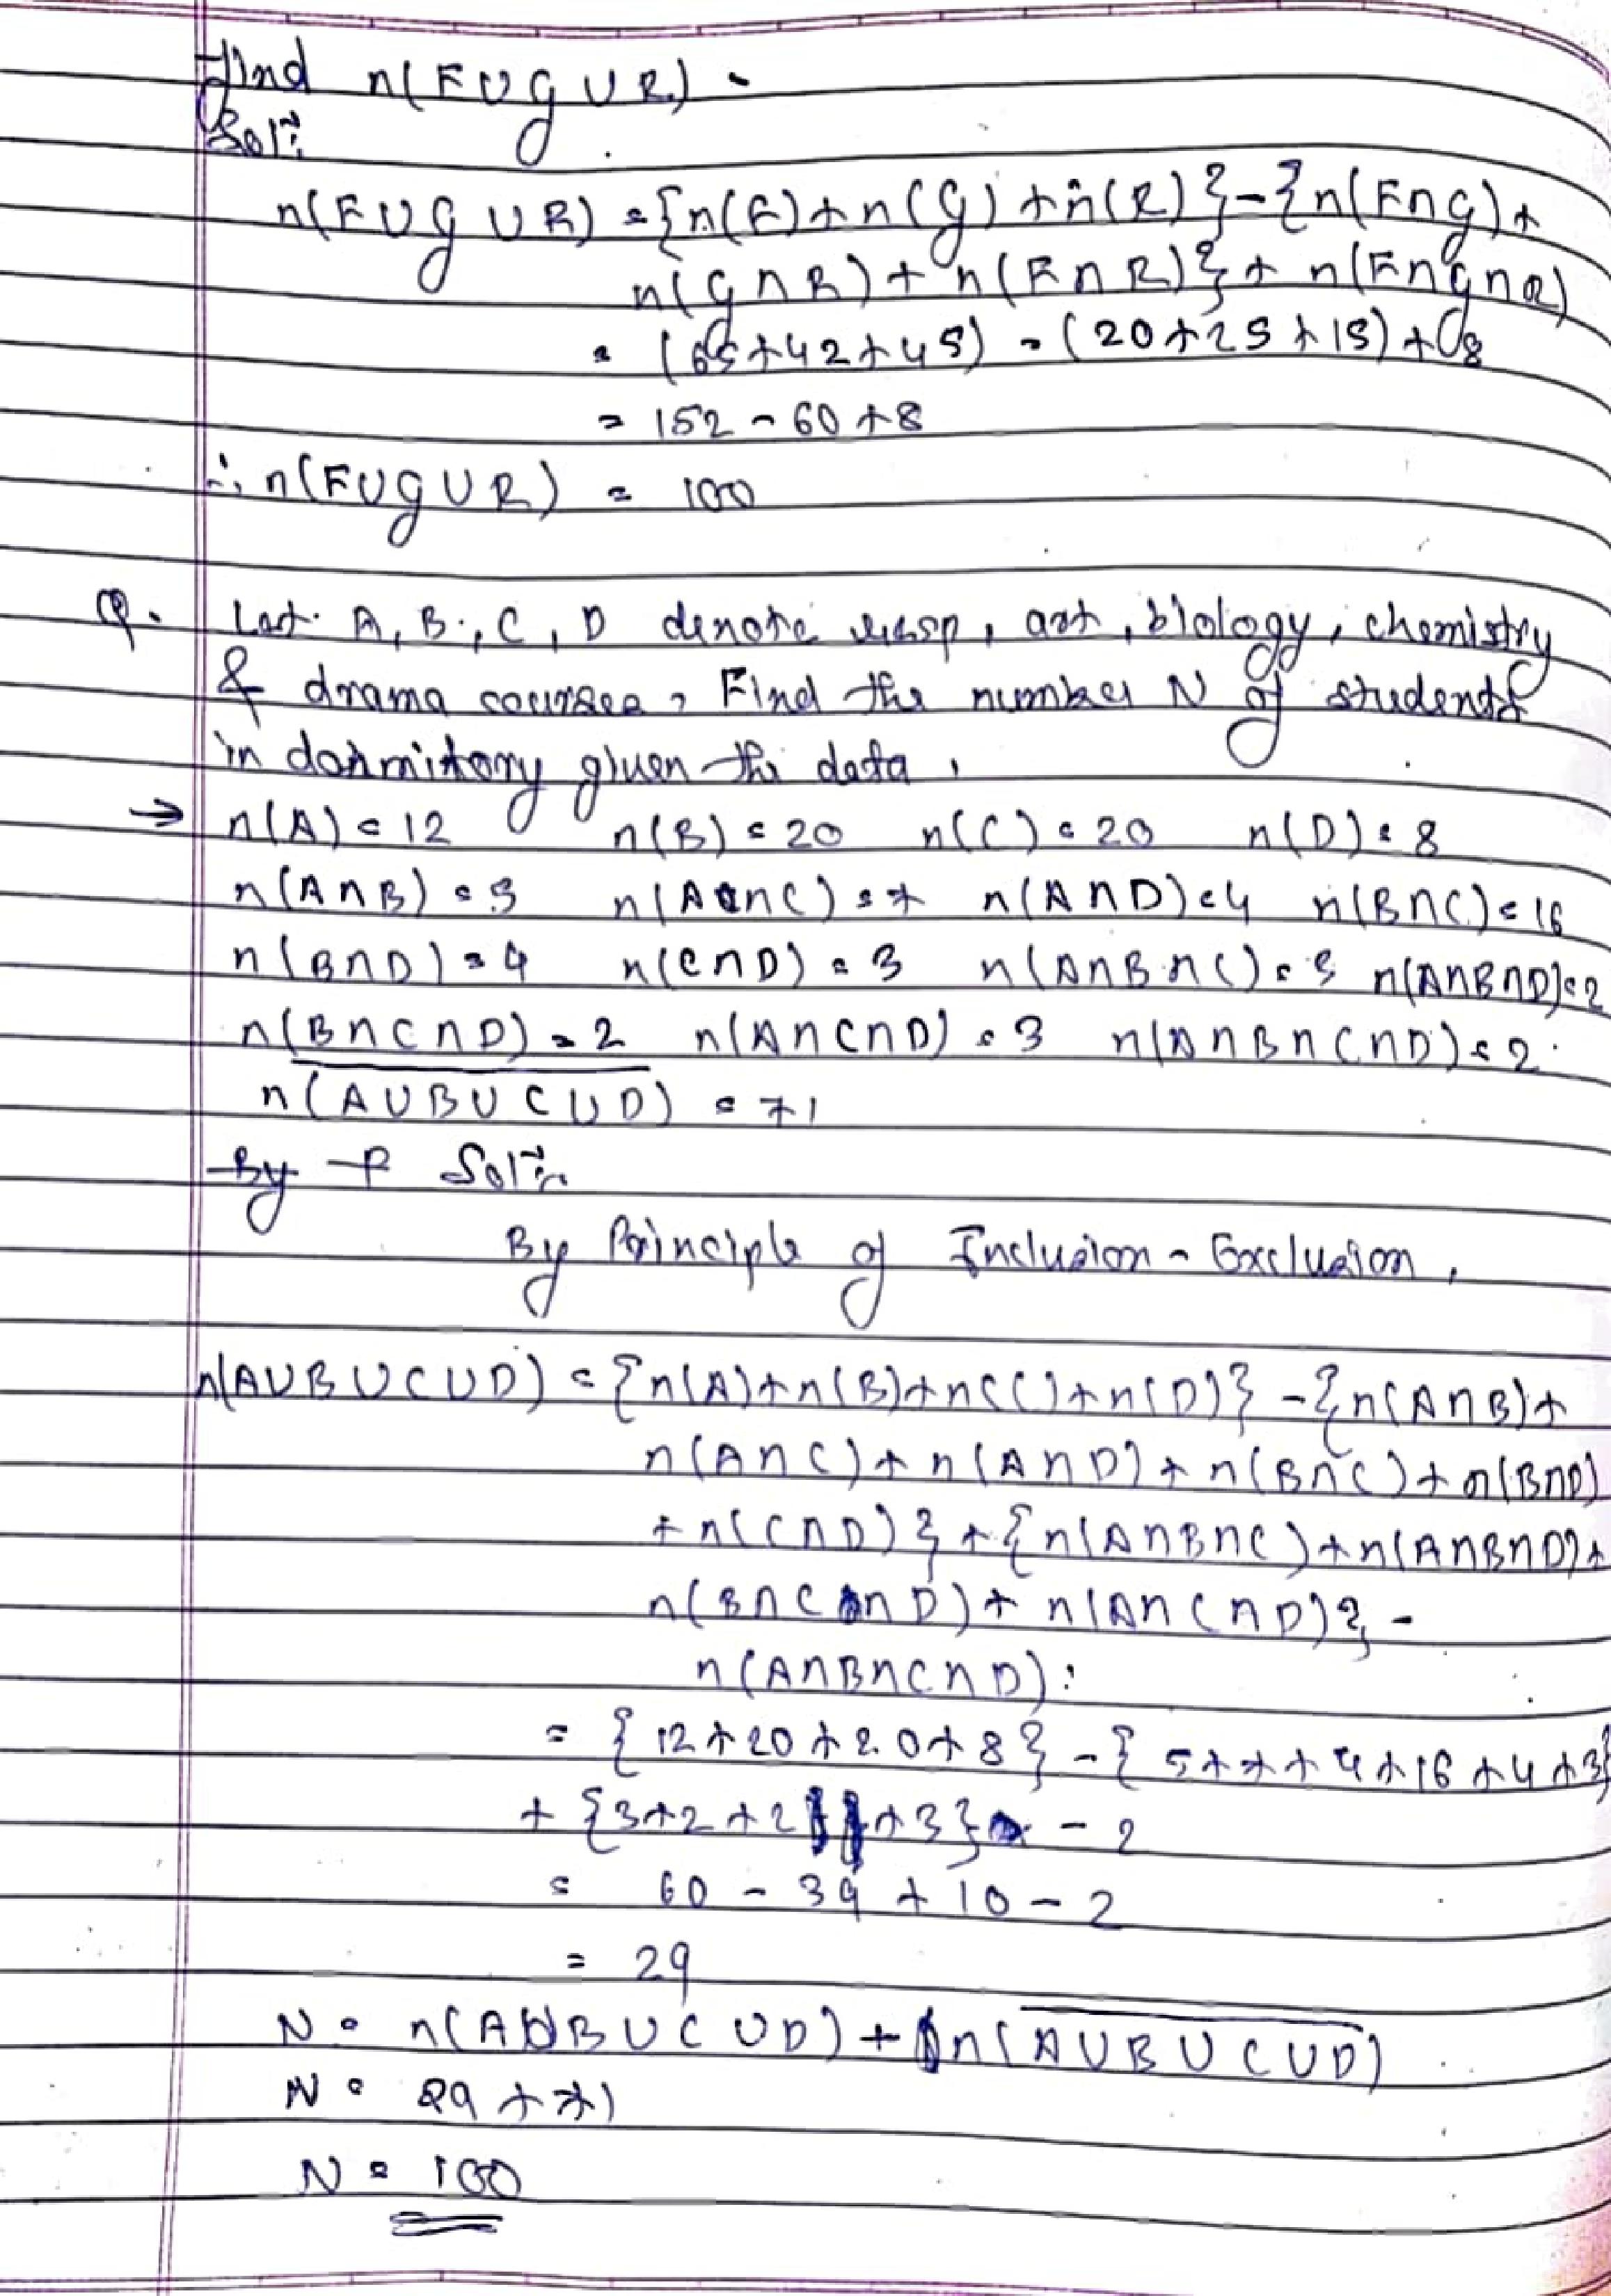 Find n(F∪G∪R).
Solⁿ:
n(F∪G∪R) = {n(F)+n(G)+n(R)}-{n(F∩G)+
n(G∩R)+n(F∩R)}+n(F∩G∩R)
= (65+42+45) - (20+25+15)+8
= 152 - 60 + 8
∴ n(F∪G∪R) = 100
Q. Let A, B, C, D denote resp, art, biology, chemistry
& drama courses, Find the number N of students
in dormitory given the data,
→ n(A)=12 n(B)=20 n(C)=20 n(D)=8
n(A∩B)=5 n(A∩C)=7 n(A∩D)=4 n(B∩C)=16
n(B∩D)=4 n(C∩D)=3 n(A∩B∩C)=3 n(A∩B∩D)=2
n(B∩C∩D)=2 n(A∩C∩D)=3 n(A∩B∩C∩D)=2.
n(A̅∪̅B̅∪̅C̅∪̅D̅) = 71
By P Solⁿ:
By Principle of Inclusion-Exclusion,
n(A∪B∪C∪D) = {n(A)+n(B)+n(C)+n(D)}-{n(A∩B)+
n(A∩C)+n(A∩D)+n(B∩C)+n(B∩D)
+n(C∩D)}+{n(A∩B∩C)+n(A∩B∩D)+
n(B∩C∩D)+n(A∩C∩D)}-
n(A∩B∩C∩D):
= {12+20+20+8}-{5+7+4+16+4+3}
+{3+2+2+3} - 2
= 60 - 39 + 10 - 2
= 29
N = n(A∪B∪C∪D)+n(A̅∪̅B̅∪̅C̅∪̅D̅)
N = 29+71
N = 100